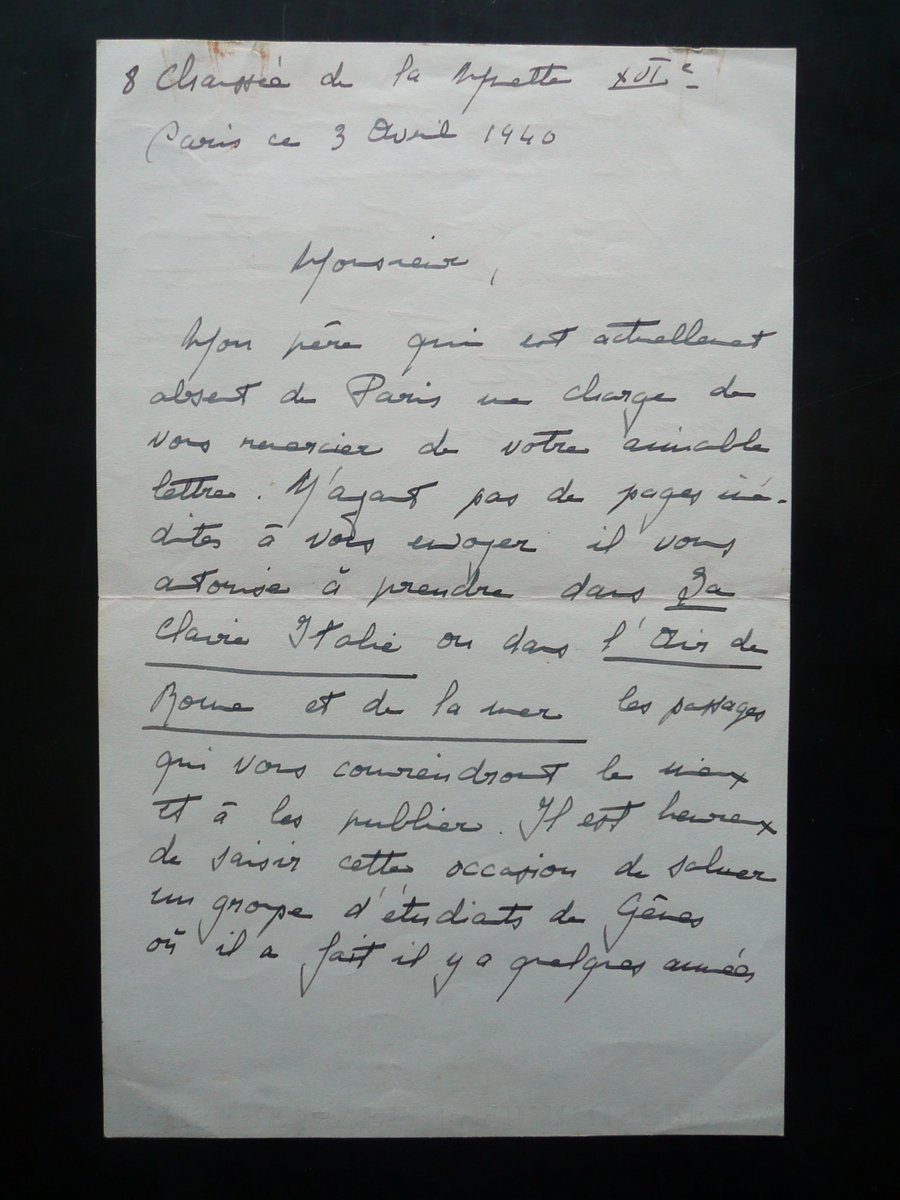 8 Chaussée de la Muette XVIe
Paris ce 3 Avril 1940
Monsieur,
Mon père qui est actuellement
absent de Paris me charge de
vous remercier de votre aimable
lettre. N'ayant pas de pages iné-
dites à vous envoyer il vous
autorise à prendre dans La
Claire Italie ou dans l'Air de
Rome et de la mer les passages
qui vous conviendront le mieux
et à les publier. Il est heureux
de saisir cette occasion de saluer
un groupe d'étudiants de Gênes
où il a fait il y a quelques années